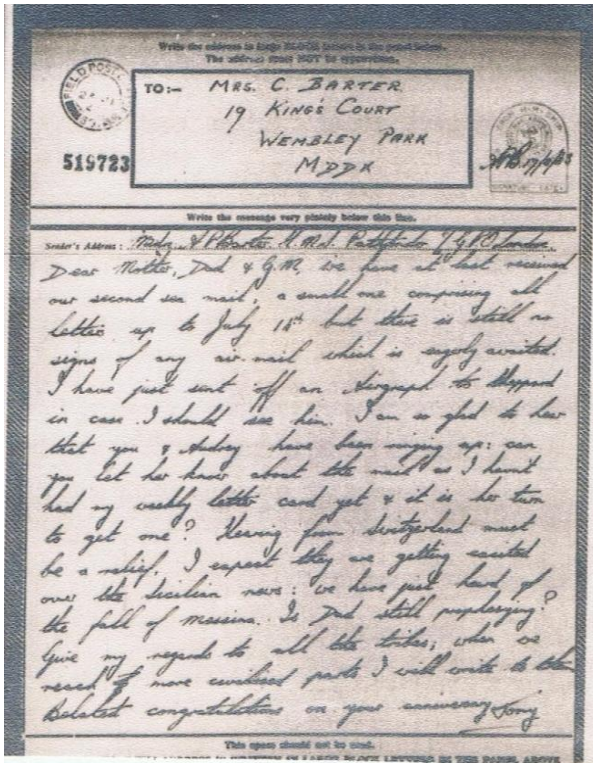 Write the address in large BLOCK letters in the panel below.
The address must NOT be typewritten.
FIELD POST
TO:— MRS. C. BARTER
19 KING'S COURT
WEMBLEY PARK
MDDX
519723
17/8/43
Write the message very plainly below this line.
Sender's Address: Midn. A P Barter H.M.S. Pathfinder % G.P.O. London.
Dear Mother, Dad & G.M, we have at last received
our second sea mail, a small one comprising all
letters up to July 1st but there is still no
signs of any air-mail which is eagerly awaited.
I have just sent off an Airgraph to Sheppard
in case I should see him. I am so glad to hear
that you & Audrey have been ringing up: can
you let her know about the mail as I haven't
had my weekly letter card yet & it is her turn
to get one? Hearing from Switzerland must
be a relief. I expect they are getting excited
over the Sicilian news: we have just heard of
the fall of Messina. Is Dad still
Give my regards to all the tribes; when we
reach more civilised parts I will write to them
Belated congratulations on your anniversary Tony
This space should not be used.